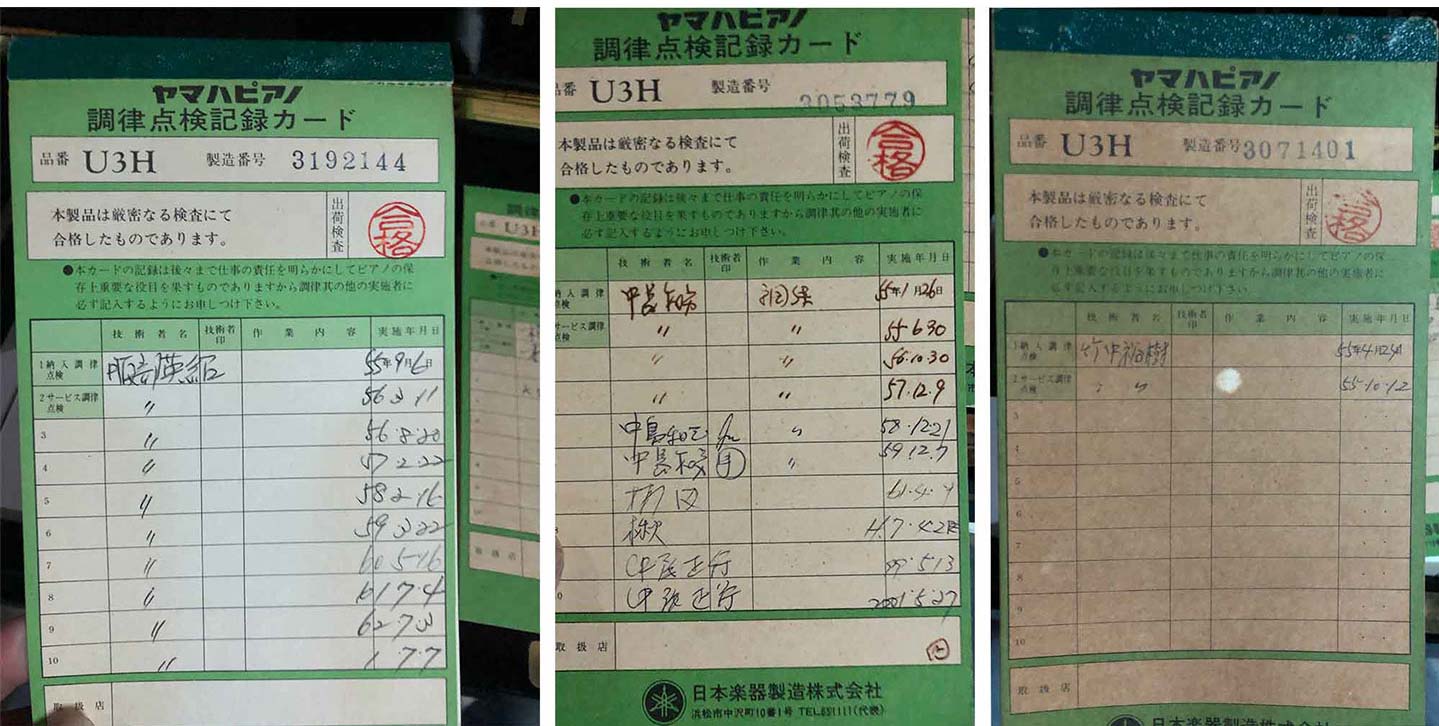 ヤマハピアノ
調律点検記録カード
品番 U3H 製造番号 3192144
本製品は厳密なる検査にて
合格したものであります。
出荷検査
合格
●本カードの記録は後々まで仕事の責任を明らかにしてピアノの保
存上重要な役目を果すものでありますから調律其の他の実施者に
必ず記入するようにお申しつけ下さい。
技術者名 技術者印 作業内容 実施年月日
1 納入調律点検 55年9月6日
2 サービス調律点検 〃 56 3 11
3 〃 56・8・20
4 〃 57・2・22
5 〃 58 2・16
6 〃 59 3 22
7 〃 60 5 16
8 〃 61 7 4
9 〃 62・7 3
10 〃 1 7・7
取扱店
ヤマハピアノ
調律点検記録カード
品番 U3H 製造番号 3053779
本製品は厳密なる検査にて
合格したものであります。
出荷検査
合格
●本カードの記録は後々まで仕事の責任を明らかにしてピアノの保
存上重要な役目を果すものでありますから調律其の他の実施者に
必ず記入するようにお申しつけ下さい。
技術者名 技術者印 作業内容 実施年月日
納入調律点検 調律 55年1月26日
サービス調律点検 〃 〃 55 6 30
〃 〃 56・10・30
〃 〃 57・12・9
〃 58・12・21
〃 59 12・7
61・4・9
H.7・4
99・5 13
2001・5・27
取扱店
日本楽器製造株式会社
浜松市中沢町10番1号 TEL 651111(代表)
ヤマハピアノ
調律点検記録カード
品番 U3H 製造番号 3071401
本製品は厳密なる検査にて
合格したものであります。
出荷検査
合格
●本カードの記録は後々まで仕事の責任を明らかにしてピアノの保
存上重要な役目を果すものでありますから調律其の他の実施者に
必ず記入するようにお申しつけ下さい。
技術者名 技術者印 作業内容 実施年月日
1 納入調律点検 竹中裕樹 55年4月
2 サービス調律点検 〃 55・10・12
3
4
5
6
7
8
9
10
取扱店